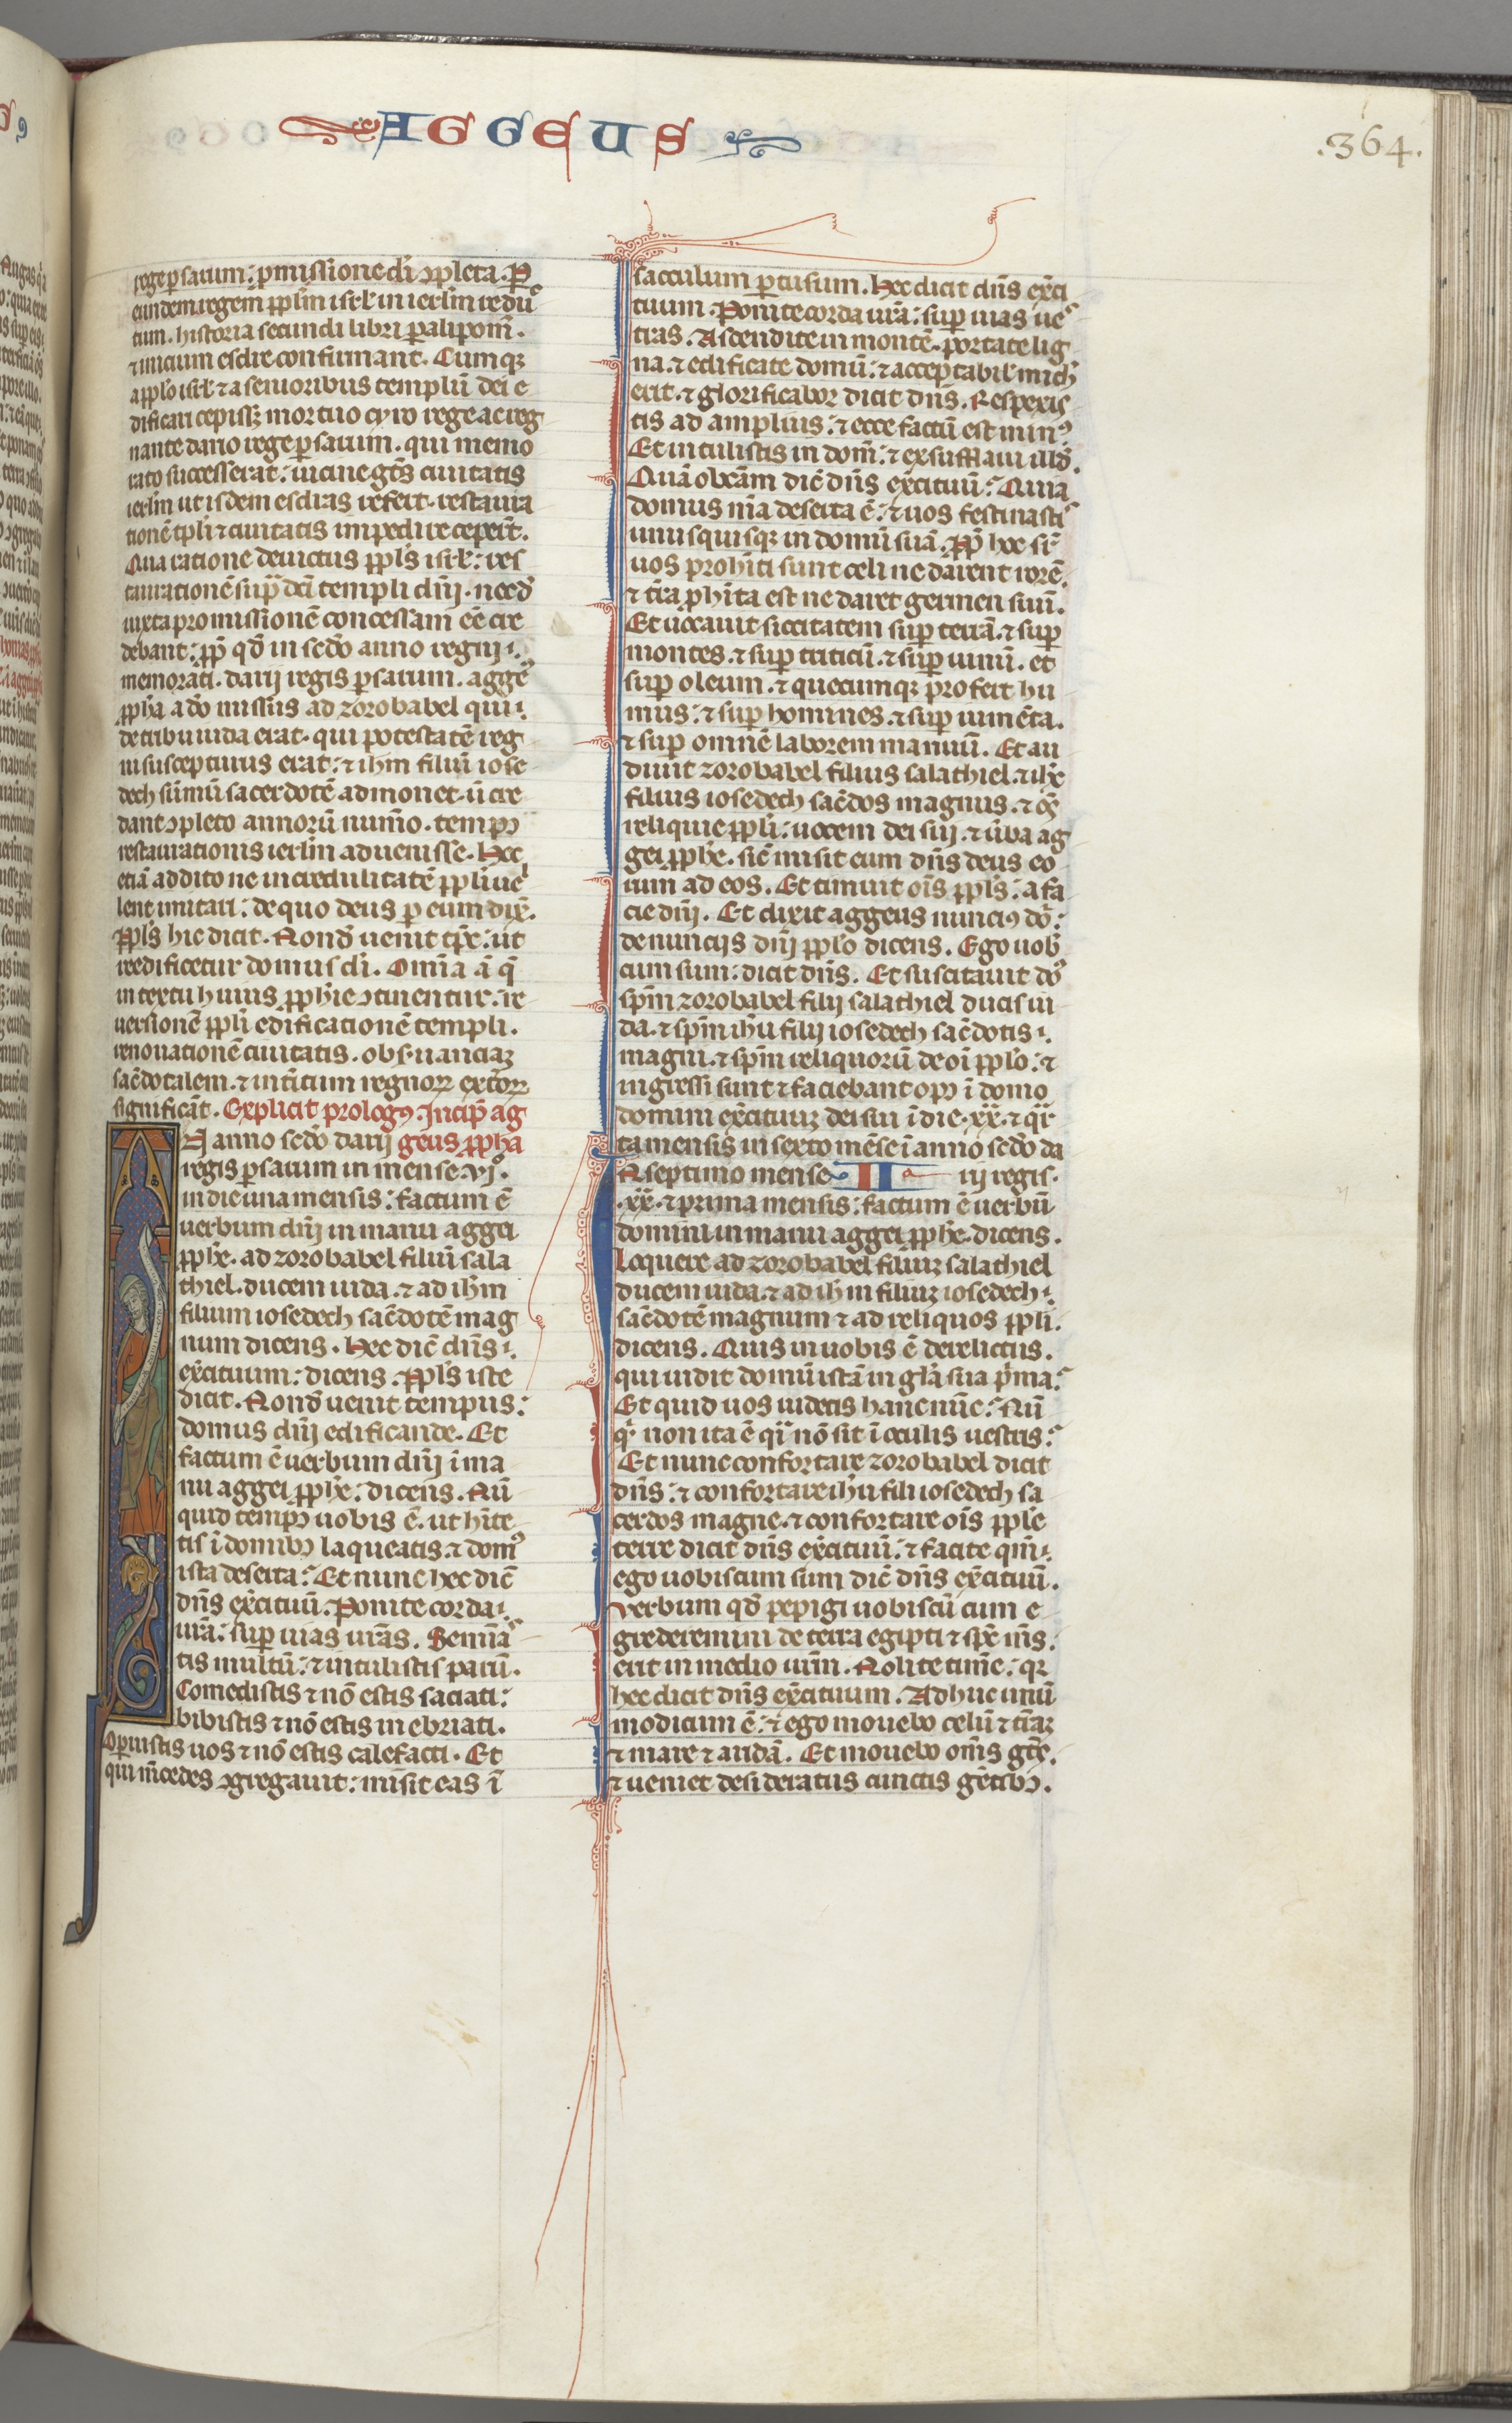 AGGEUS
.364.
rege persarum: p̄missione dn̄i ↄpleta. P̱
eundem regem pp̄lm isrl̄ in ierl̄m reduc
tum. historia secundi libri paralipom̄.
⁊ inicium esdre confirmant. Cumqꝫ
a pplo isrl̄ ⁊ a senioribus templū dei e
dificari cepissꝫ mortuo cyro rege ac reg
nante dario rege persarum. qui memo
rato successerat: uicine gētes ciuitatis
ierl̄m ut isdem esdras refert. restaura
tionē tp̄li ⁊ ciuitatis impedire ceper̄t.
Qua ratione deuictus ppl̄s isrl̄: res
taurationē sup̄ dc̄i templi dn̄i. necd̄
iuxta promissionē concessam eē cre
debant: pp̄ qd̄ in sc̄do anno regni
memorati. darij regis persarum. agge9
ppha a do missus ad zorobabel qui
de tribu iuda erat. qui potestatē reg
ni suscepturus erat: ⁊ ihm filiū iose
dech sūmū sacerdotē admonet. ū cre
dant ↄpleto annorū num̄o. temp9
restaurationis ierl̄m aduenisse. Hec
etiā addito ne incredulitatē ppl̄i ue
lent imitari: de quo deus per eum dix̄.
Ppl̄s hic dicit. Nond̄ uenit tp̄c: ut
reedificetur domus dn̄i. Omnia ā q̄
in textu huius pph̄ie ↄtinentur. re
uersionē ppl̄i edificationē templi.
renouationē ciuitatis. obseruanciaꝫ
sac̄dotalem. ⁊ int̄itum regnoꝝ ext̄oꝝ
significāt. Explicit prolog9. Incip̄ ag
N anno sc̄do darij geus ppha
regis persarum in mense vjº.
in die una mensis: factum ē
uerbum dn̄i in manu aggei
pph̄e. ad zorobabel filiū sala
thiel. ducem iuda. ⁊ ad ihm
filium iosedech sac̄dotē mag
num dicens. Hec dic̄ dn̄s
exc̄ituum: dicens. Ppl̄s iste
dicit. Nond̄ uenit tempus:
domus dn̄i edificande. Et
factum ē uerbum dn̄i ī ma
nu aggei pph̄e: dicens. Nū
quid temp9 uobis ē. ut hīte
tis ī domibꝫ laqueatis. ⁊ dom9
ista deserta: Et nunc hec dic̄
dn̄s exc̄ituū. Ponite corda
ur̄a: super uias ur̄as. Semīas
tis multū: ⁊ intulistis parū.
Comedistis ⁊ nō estis saciati:
bibistis ⁊ nō estis inebriati.
Operuistis uos ⁊ nō estis calefacti. Et
qui m̄cedes ↄgregauit: misit eas ī
sacculum pertusum. Hec dicit dn̄s exc̄i
tuum. Ponite corda ur̄a: super uias ues
tras. Ascendite in montē. portate lig
na. ⁊ edificate domū: ⁊ acceptabil̄ mich̄
erit. ⁊ glorificabor dicit dn̄s. Respexis
tis ad amplius: ⁊ ecce factū est min9.
Et intulistis in dom̄: ⁊ exsufflaui illd̄.
Quā ob c̄am dic̄ dn̄s exc̄ituū: Quia
domus m̄a deserta ē: ⁊ uos festinastis
unusquisqꝫ in domū suā. Pp̄ hoc sr̄
uos prohīti sunt celi ne darent rorē.
⁊ tr̄a phīta est ne daret germen suū.
Et uocauit siccitatem super terrā. ⁊ super
montes. ⁊ super triticū. ⁊ super uinū. et
super oleum. ⁊ quecumqꝫ profert hu
mus: ⁊ super homines. ⁊ super iumēta.
⁊ super omnē laborem manuū. Et au
diuit zorobabel filius salathiel. ⁊ ihc̄
filius iosedech sac̄dos magnus. ⁊ om̄s
reliquie ppl̄i: uocem dei sui. ⁊ ūba ag
gei pph̄e. sic̄ misit eum dn̄s deus eo
rum ad eos. Et timuit oīs ppl̄s: a fa
cie dn̄i. Et dixit aggeus nunci9 dn̄i:
de nuncijs dn̄i pplo dicens. Ego uob̄
cum sum: dicit dn̄s. Et suscitauit do9
spm̄ zorobabel filij salathiel ducis iu
da. ⁊ spm̄ ihu filij iosedech sac̄dotis
magni. ⁊ spm̄ reliquorū de oī pplo: ⁊
ingressi sunt ⁊ faciebant op9 ī domo
domini exc̄ituuꝫ dei sui ī die .xx. ⁊ qr̄
ta mensis in sexto mēse ī anno sc̄do da
N septimo mense II rij regis.
.xx. ⁊ prima mensis: factum ē uerbū
domini in manu aggei pph̄e. dicens.
Loquere ad zorobabel filiuꝫ salathiel
ducem iuda. ⁊ ad ihm filiuꝫ iosedech
sac̄dotē magnum ⁊ ad reliquos ppl̄i.
dicens. Quis in uobis ē derelictus.
qui uidit domū istā in gl̄a sua p̄ma:
Et quid uos uidetis hanc nūc: Nū
qd̄ non ita ē q̄si nō sit ī oculis uestris:
Et nunc confortare zorobabel dicit
dn̄s: ⁊ confortare ihu fili iosedech sa
cerdos magne. ⁊ confortare oīs pple
terre dicit dn̄s exc̄ituū: ⁊ facite qm̄
ego uobiscum sum dic̄ dn̄s exc̄ituū.
Verbum qd̄ pepigi uobiscū cum e
grederemini de terra egipti ⁊ sp̄c m̄s:
erit in medio ur̄m. Nolite tim̄e: qꝛ
hec dicit dn̄s exc̄ituum. Adhuc unū
modicum ē: ⁊ ego mouebo celū ⁊ tr̄aꝫ
⁊ mare ⁊ aridā. Et mouebo om̄s gētes.
⁊ ueniet desideratus cunctis gētibꝫ.